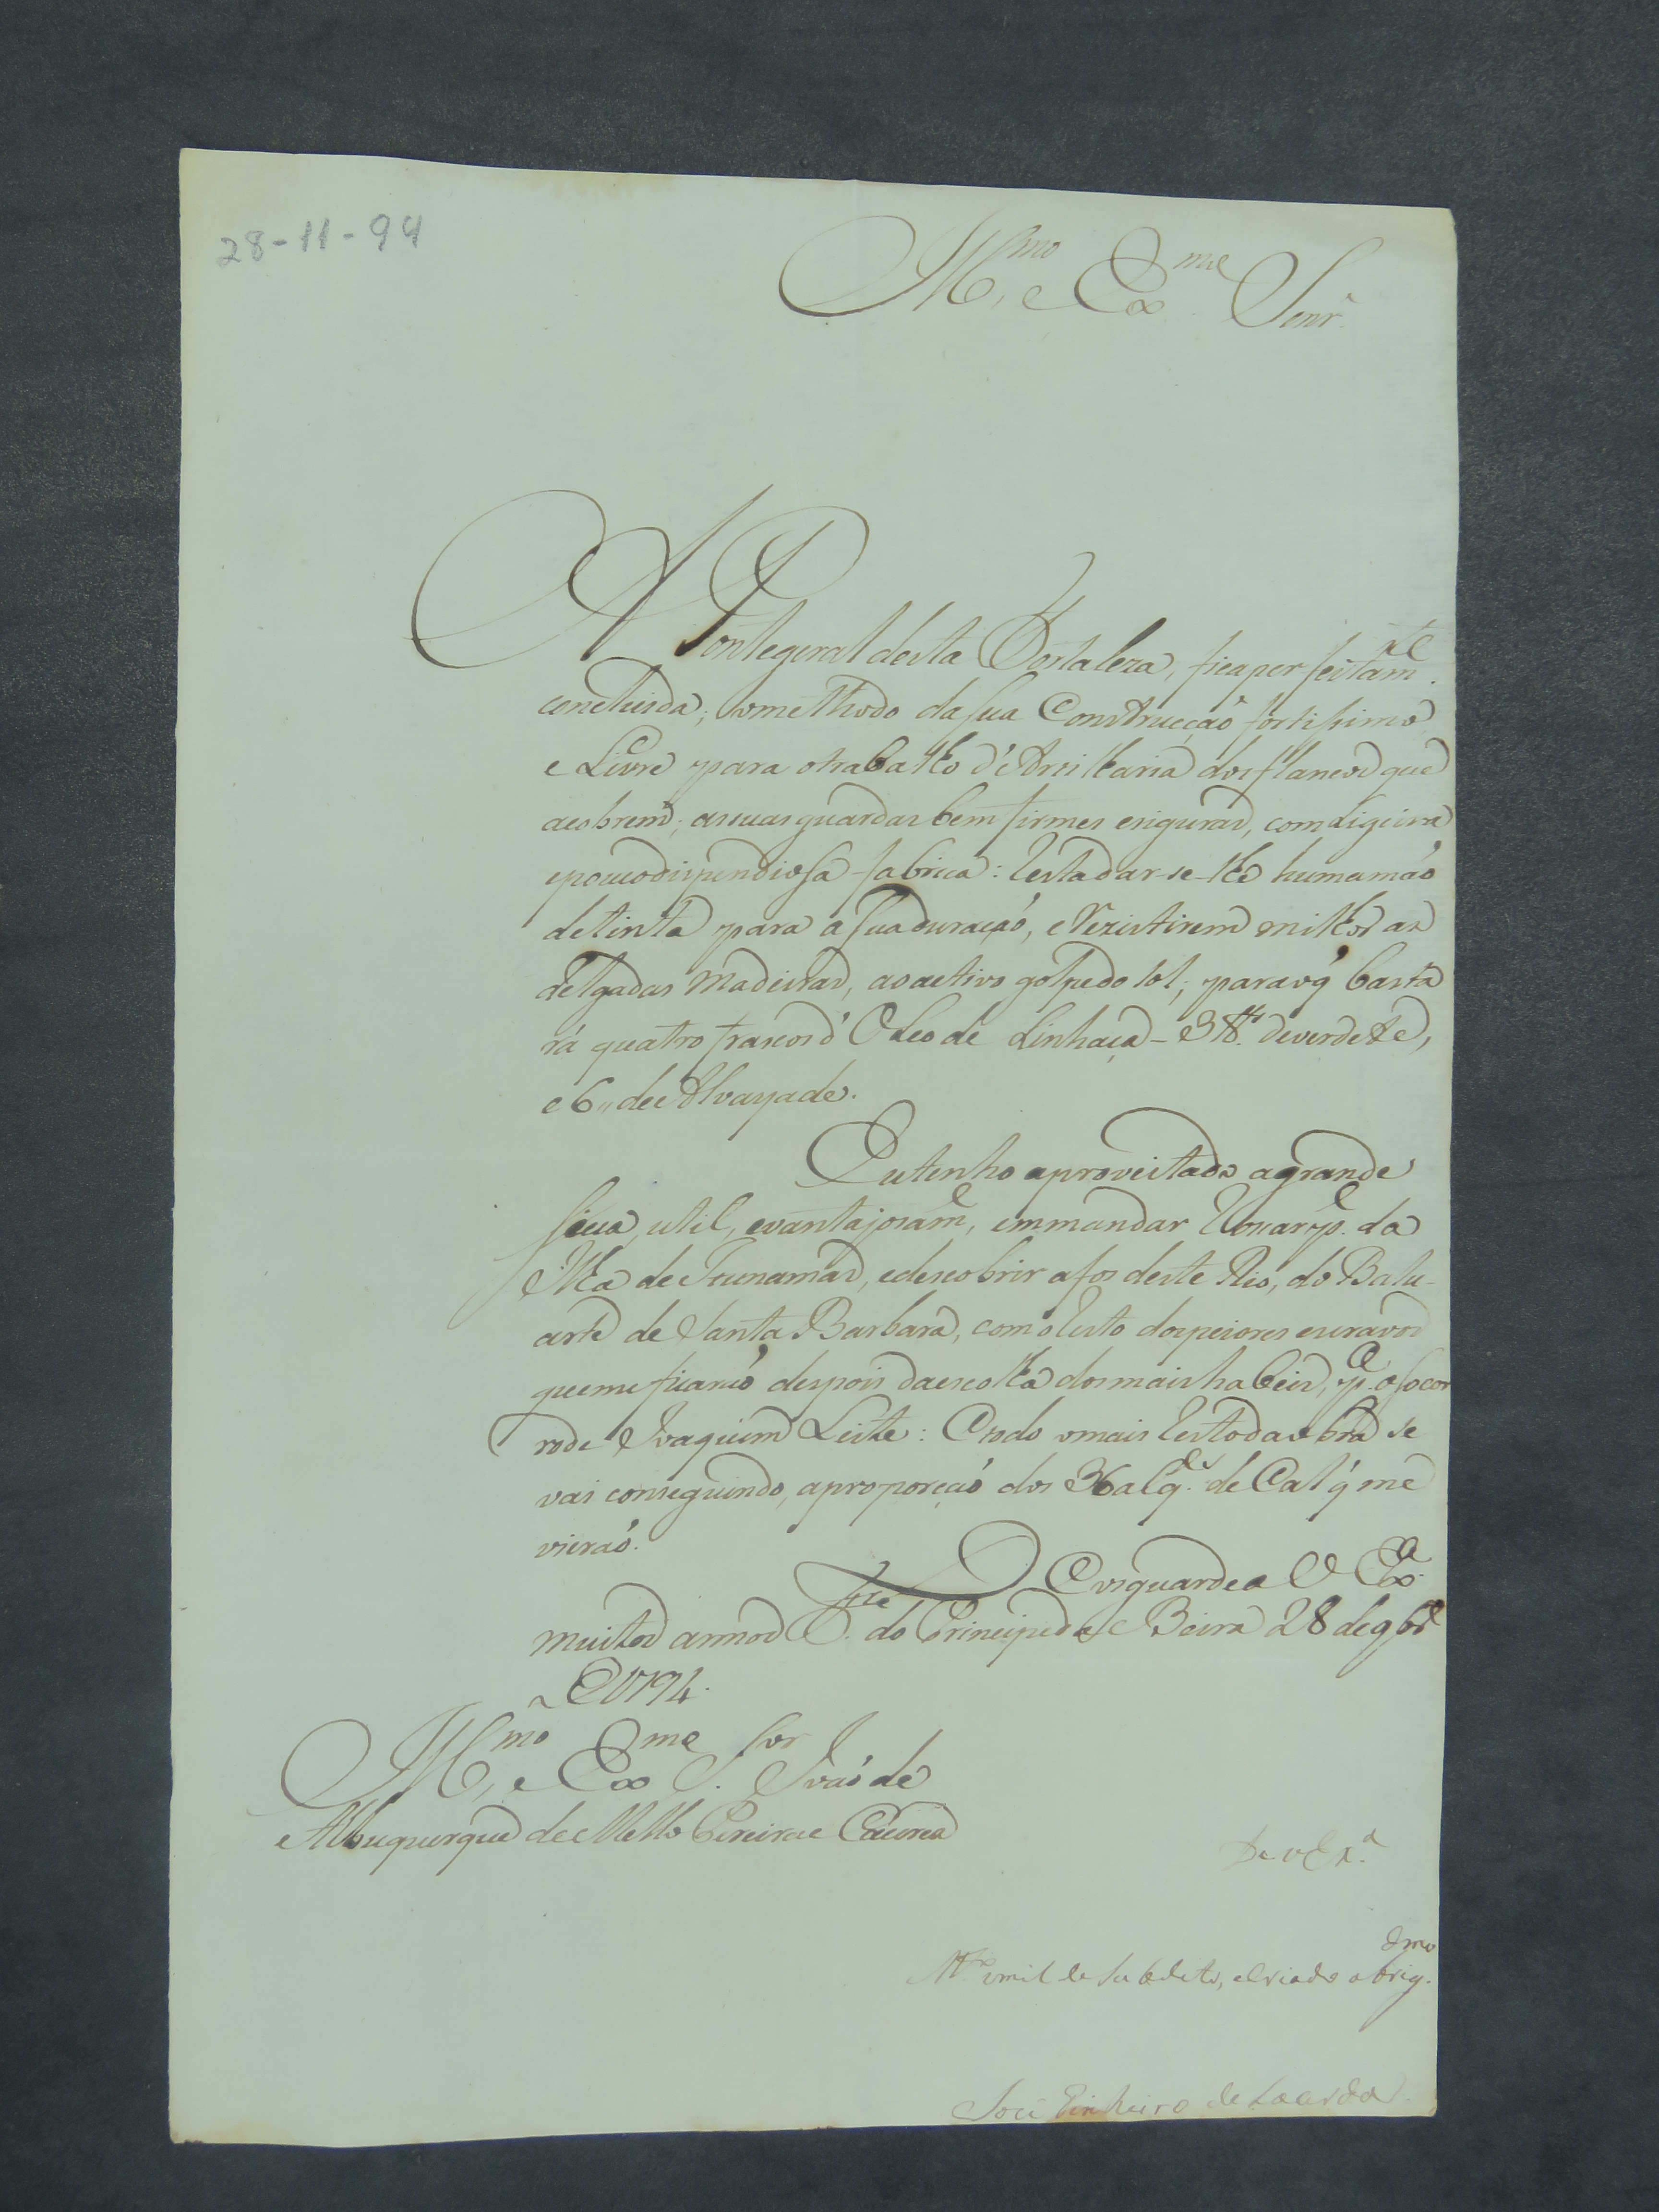 28-11-94
Ill.mo, e Ex.mo Senr.
A Ponte geral desta Fortaleza, fica perfeitam.te
concluida; o methodo da sua Construcçaõ fortissimo
e Livre para o trabalho d'Artilharia dos flancos que
a cobrem; as suas guardas bem firmes e siguras, com ligeira
e pouco dispendiosa fabrica: resta dar-se-lhe huma maõ
de tinta para a sua duraçaõ, e rezistirem milhor as
delgadas madeiras, ao activo golpe do sol; para o q' basta
rá quatro frascos d'Oleo de Linhaça - 3 lb.as de verdete,
e 6,, de Alvayade.
Eu tenho aproveitado a grande
seca, util, e vantajosam.e, em mandar rossar p.a da
Ilha de Tunamas, e descobrir a fos deste Rio, do Balu-
arte de Santa Barbara, com o resto dos peiores escravos
que me ficaraõ despois da escolha dos mais habeis, p.a o socor
ro de Joaquim Leite: E todo o mais resto da obra se
vai conseguindo, a proporçaõ dos 36 alq.es de Cal q' me
vieraõ.
Deos guarde a V Ex.a
muitos annos F.te do Principe da Beira 28 de 9br.o
de 1794.
Ill.mo, e Ex.mo S.or Joaõ de
Albuquerque de Mello Pereira e Caceres
De V Ex.a
M.to omilde subdito, e criado obrig.dmo
José Pinheiro de Lacerda.